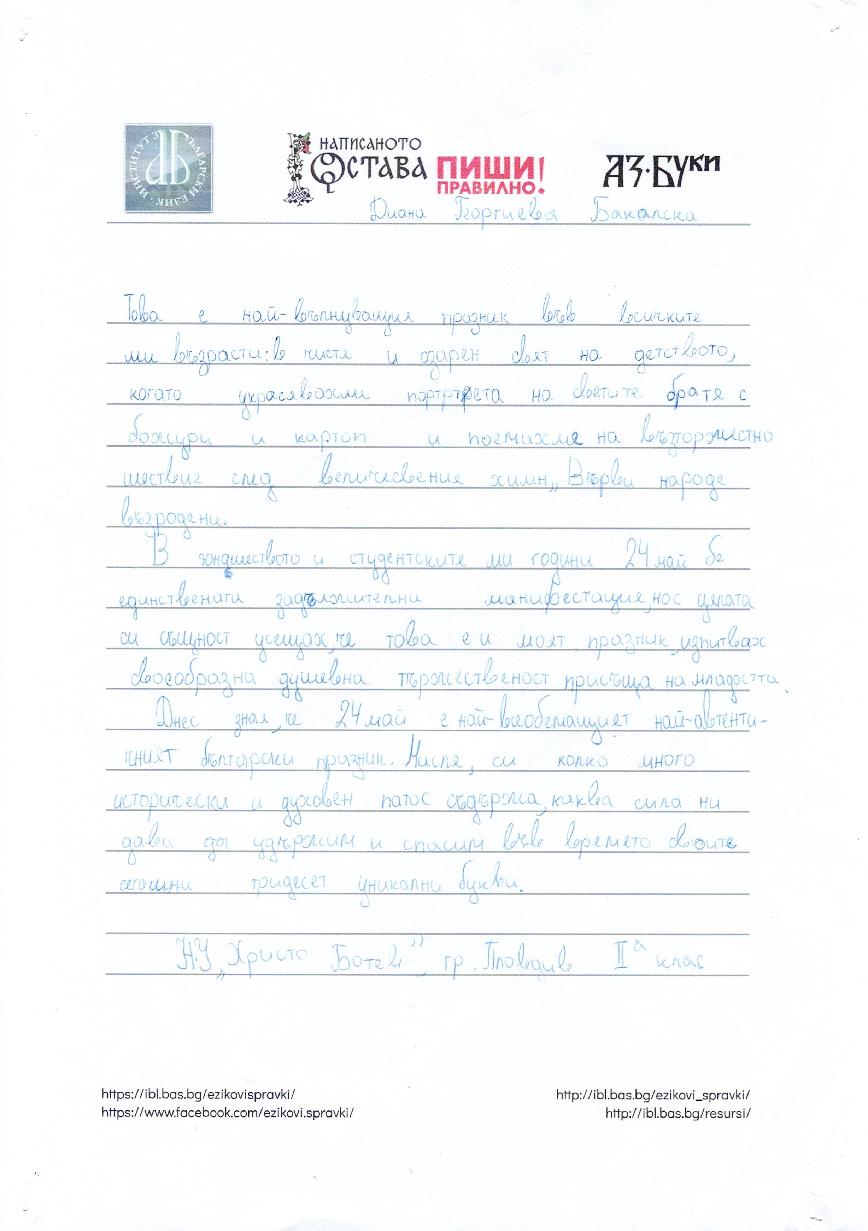 ИНСТИТУТ ЗА БЪЛГАРСКИ ЕЗИК
НАПИСАНОТО
ОСТАВА ПИШИ!
ПРАВИЛНО!
АЗ·БУКИ
Диана Георгиева Бакалска
Това е най-вълнуващия празник във всичките
ми възрасти: в чистя и озарен свят на детството,
когато украсявахми портртрета на светите братя с
божури и картоп и поемихме на възторжестно
шествие след величесвения химн „Върви народе
възродени.
В юндшеството и студентските ми години 24 май бе
единствената задължителни манифестация, нос цялата
си същност усещах, че това е и моят празник, изпитвах
своеобразна душевна тържественост присъща на младостта.
Днес зная, че 24 май е най-всеобемащият най-автенти-
чният български празник. Мисля, си колко много
исторически и духовен патос съдържа, каква сила ни
дава да удържим и спасим във времето своите
сегашни тридесет уникални букви.
НУ „Христо Ботев" гр. Пловдив IIа клас
https://ibl.bas.bg/ezikovispravki/ http://ibl.bas.bg/ezikovi_spravki/
https://www.facebook.com/ezikovi.spravki/ http://ibl.bas.bg/resursi/